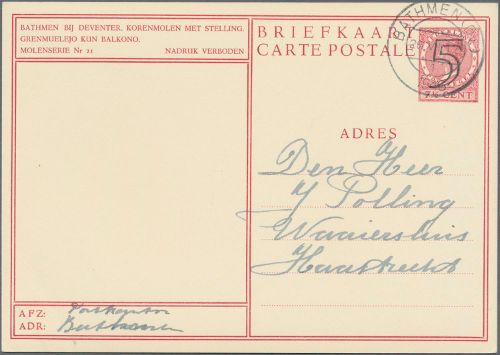 BATHMEN BIJ DEVENTER. KORENMOLEN MET STELLING.
GRENMUELEJO KUN BALKONO.
MOLENSERIE Nr 21 NADRUK VERBODEN
BRIEFKAART
CARTE POSTALE
BATHMEN
5
7½ CENT
ADRES
Den Heer
Y Polling
Waaiershuis
Haastrecht
AFZ: Postkantoor
ADR: Bathmen